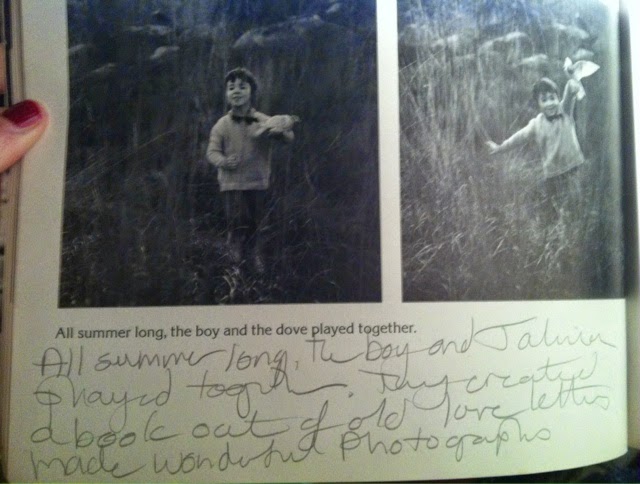 All summer long, the boy and the dove played together.
All summer long, the boy and
played together. They created
a book out of old love letters
made wonderful photographs